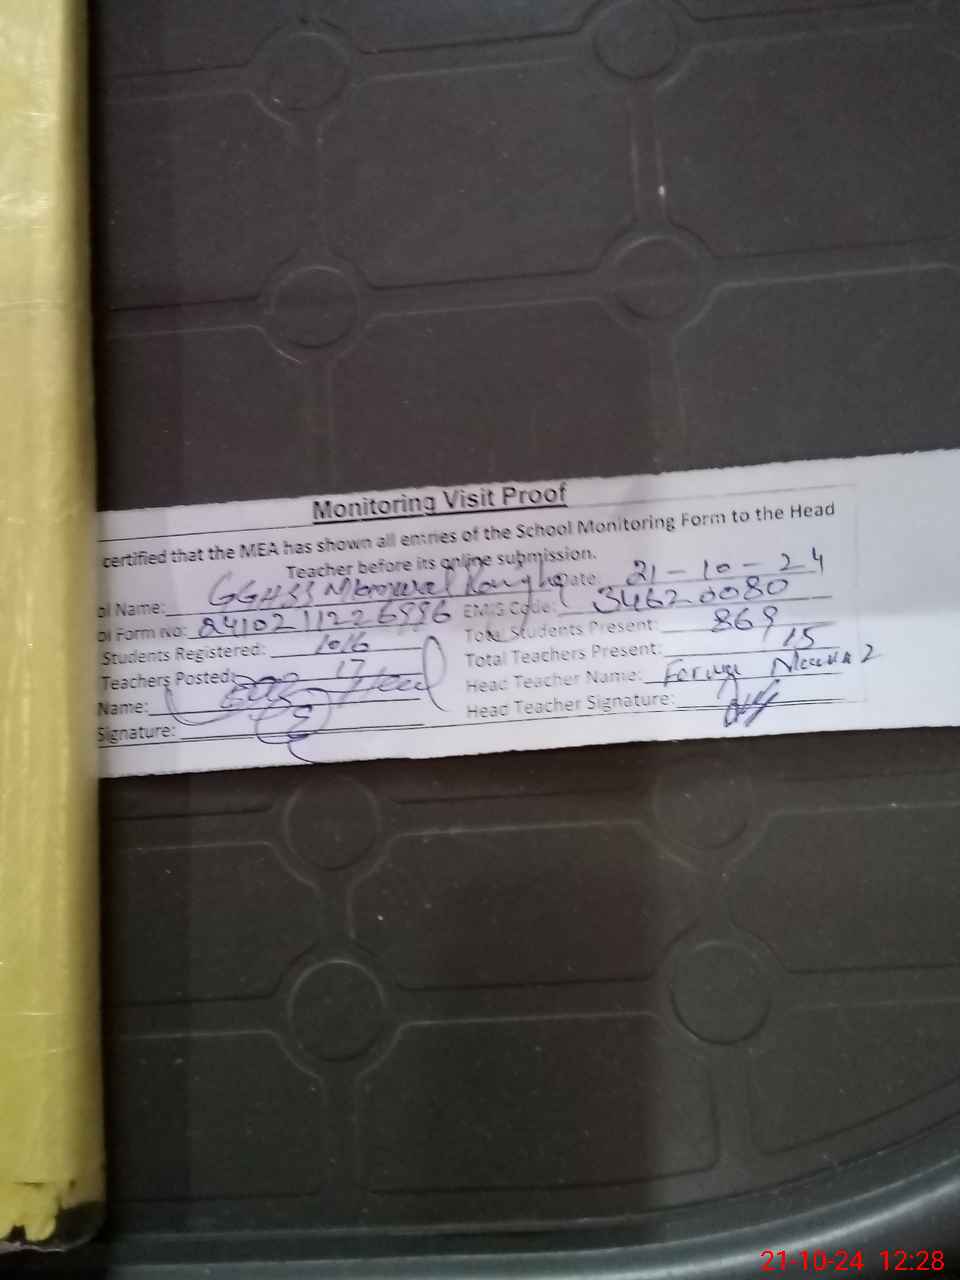 Monitoring Visit Proof
certified that the MEA has shown all entries of the School Monitoring Form to the Head
Teacher before its online submission.
ol Name: GGHSS Date 21-10-24
ol Form No: EMIS Code: 34620080
Students Registered: 1016 Total Students Present: 869
Teachers Posted: 17 Total Teachers Present: 15
Name: Head Teacher Name:
Signature: Head Teacher Signature:
21-10-24 12:28